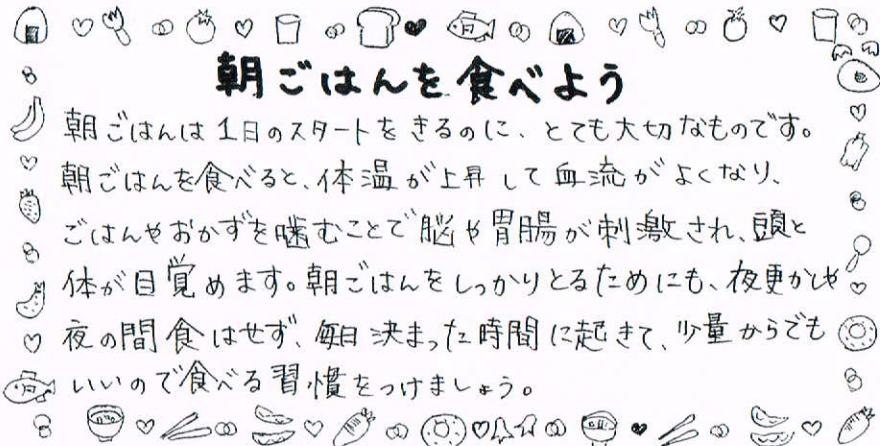 朝ごはんを食べよう
朝ごはんは1日のスタートをきるのに、とても大切なものです。
朝ごはんを食べると、体温が上昇して血流がよくなり、
ごはんやおかずを噛むことで脳や胃腸が刺激され、頭と
体が目覚めます。朝ごはんをしっかりとるためにも、夜更かしや
夜の間食はせず、毎日決まった時間に起きて、少量からでも
いいので食べる習慣をつけましょう。